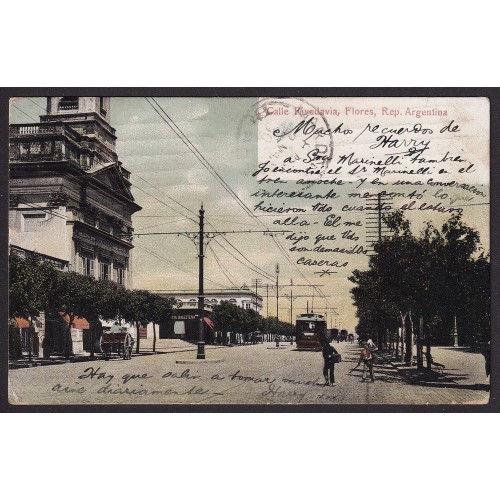 Calle Rivedavia, Flores, Rep. Argentina
Muchos recuerdos de
Harry
a Sra Marinelli tambien
encontré el Sr Marinelli en el
anoche - y en una conversacion
interesante me contó lo que
hicieron Vds cuando el estaba
alla - El me
dijo que Vds
son demasiado
caseras
Hay que salir a tomar mucho
aire diariamente -
Harry